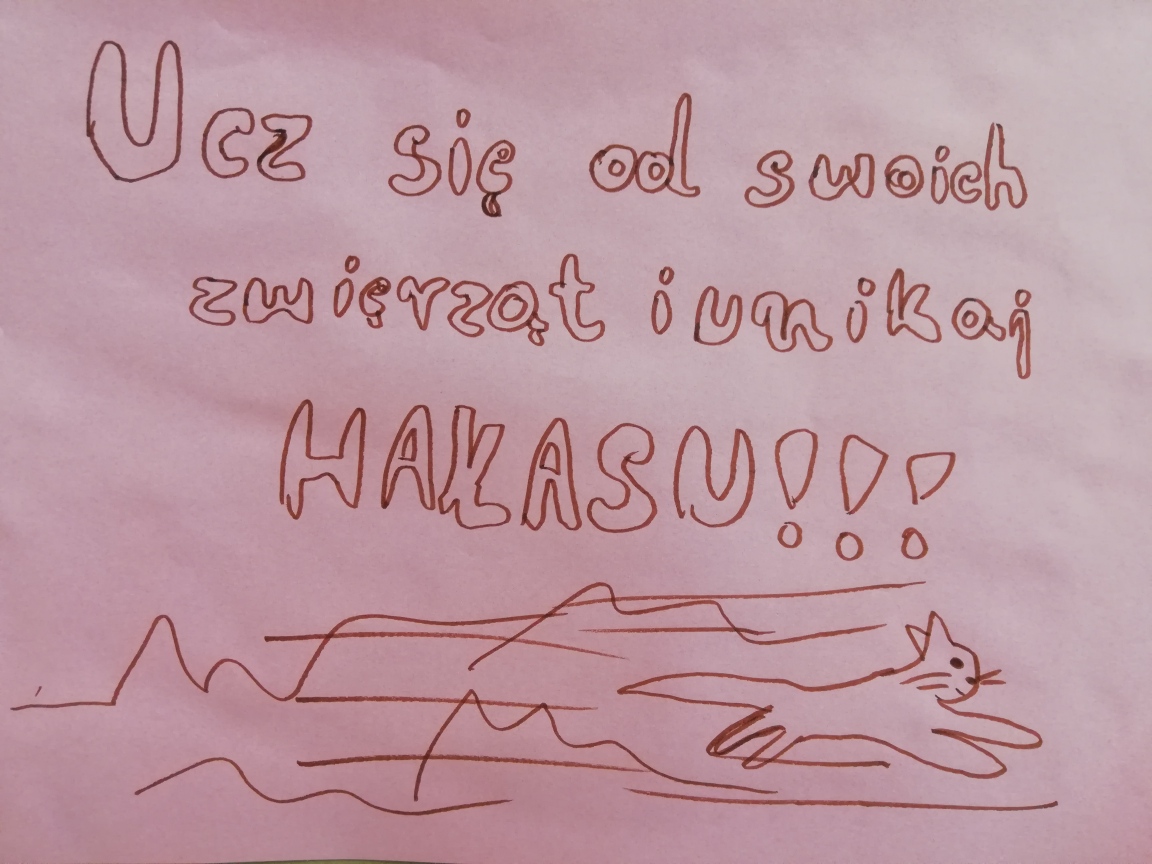 Ucz się od swoich
zwięrząt i unikaj
HAŁASU!!!